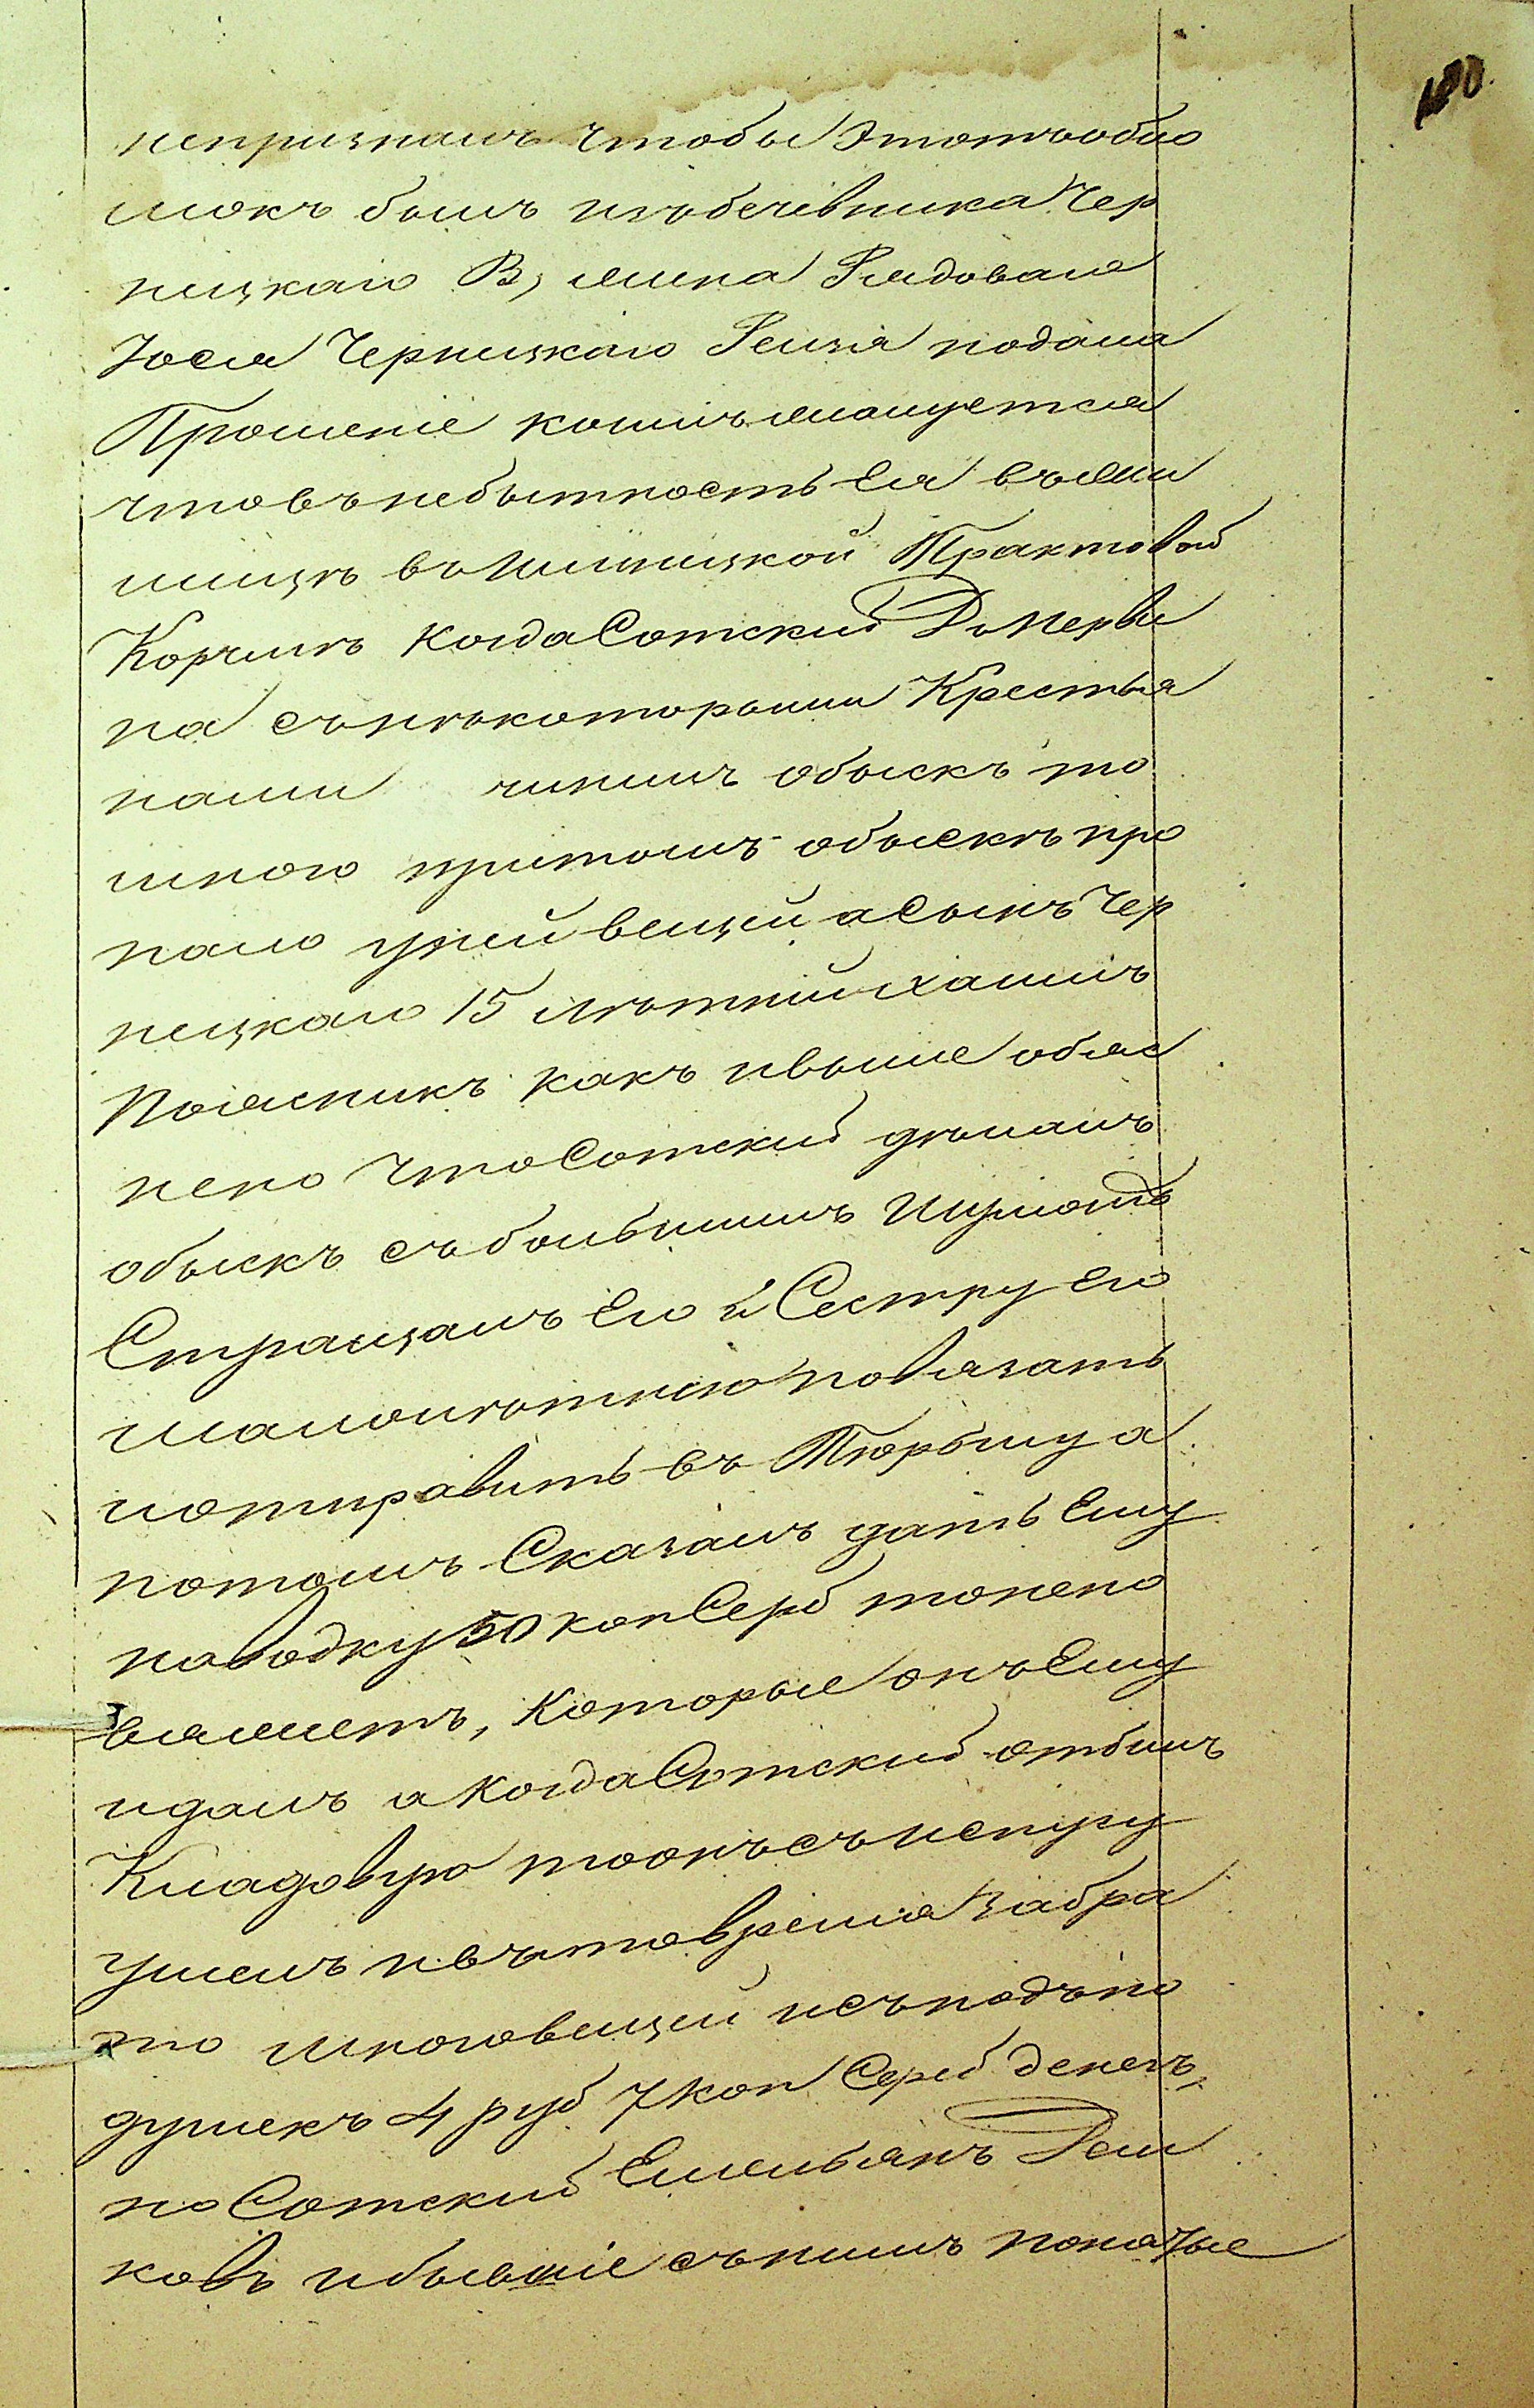 100.
непризналъ чтобы этотъ обло
мокъ былъ изъ бечевника Чер
ницкаго В, жена Рядоваго
Іося Черницкаго Рейзя подала
Прошеніе коимъ жалуется
что въ небытность Ея въ жи
лищѣ во Шинницкой Трактовой
Корчмѣ когда Сотскій Д. Нерви
на съ нѣкоторыми Крестья
нами чинилъ обыскъ то
много притомъ обыскѣ про
пало у ней вещей а Сынъ Чер
ницкаго 15 лѣтній Хаимъ
Пояснилъ какъ и выше объяс
нено что Сотскій дѣлалъ
обыскъ съ большимъ шумомъ
Стращалъ Его и Сестру Его
малолѣтнюю повязать
и отправить въ Тюрьму а
потомъ Сказалъ дать Ему
на водку 50 коп Сереб то не по
вяжетъ, которые онъ Ему
и далъ а когда Сотскій отбилъ
Кладовую то онъ съ испугу
ушелъ и въ то время забра
то много вещей и съ подъ по
душекъ 4 руб 7 коп Сереб денегъ,
но Сотскій Емельянъ Дем
ковъ и бывшіе съ нимъ понятые